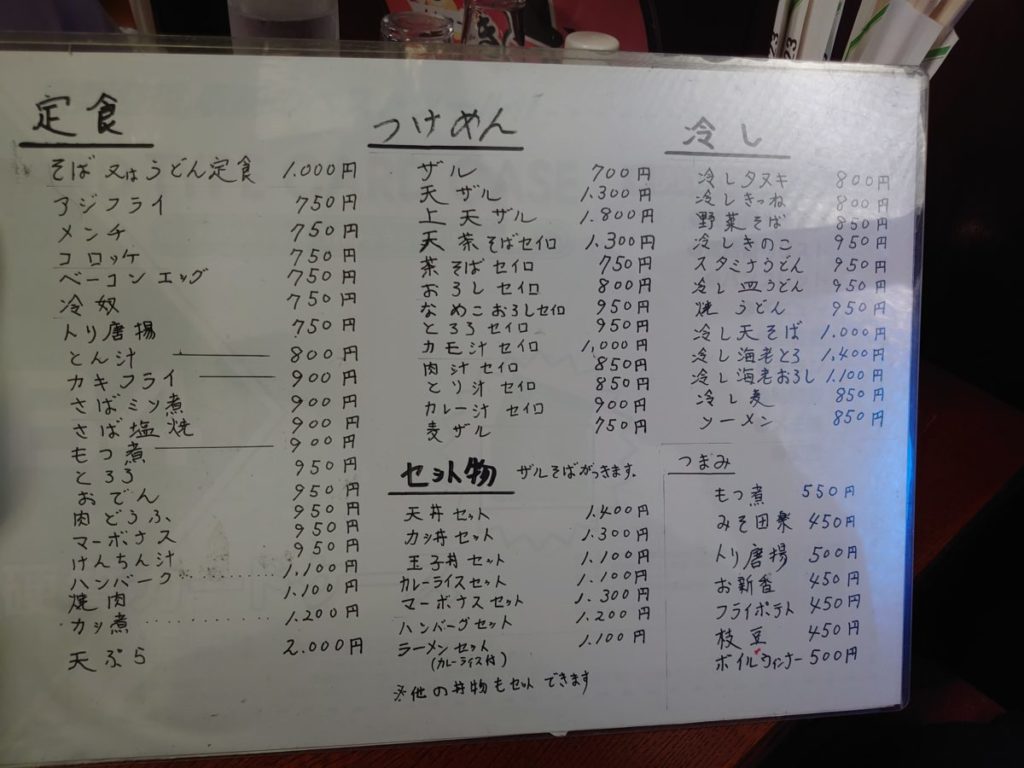 定食
そば又はうどん定食 1.000円
アジフライ 750円
メンチ 750円
コロッケ 750円
ベーコンエッグ 750円
冷奴 750円
トリ唐揚 750円
とん汁 800円
カキフライ 900円
さばミソ煮 900円
さば塩焼 900円
もつ煮 900円
とろろ 950円
おでん 950円
肉どうふ 950円
マーボナス 950円
けんちん汁 950円
ハンバーク 1.100円
焼肉 1.100円
カツ煮 1.200円
天ぷら 2.000円
つけめん
ザル 700円
天ザル 1.300円
上天ザル 1.800円
天茶そばセイロ 1.300円
茶そばセイロ 750円
おろしセイロ 800円
なめこおろしセイロ 950円
とろろセイロ 950円
カモ汁セイロ 1,000円
肉汁セイロ 850円
とり汁セイロ 850円
カレー汁セイロ 900円
麦ザル 750円
セット物 ザルそばがつきます。
天丼セット 1.400円
カツ丼セット 1.300円
玉子丼セット 1.100円
カレーライスセット 1.100円
マーボナスセット 1.300円
ハンバーグセット 1.200円
ラーメンセット 1.100円
(カレーライス付)
※他の丼物もセットできます
冷し
冷しタヌキ 800円
冷しきつね 800円
野菜そば 850円
冷しきのこ 950円
スタミナうどん 950円
冷し皿うどん 950円
焼うどん 950円
冷し天そば 1.000円
冷し海老とろ 1.400円
冷し海老おろし 1.100円
冷し麦 850円
ソーメン 850円
つまみ
もつ煮 550円
みそ田楽 450円
トリ唐揚 500円
お新香 450円
フライポテト 450円
枝豆 450円
ボイルウィンナー 500円